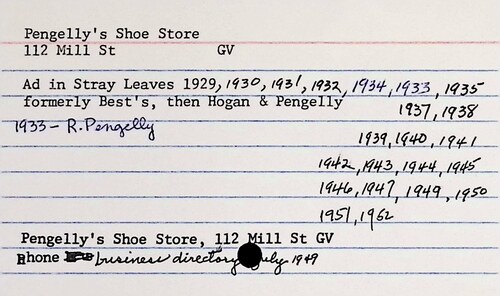 Pengelly's Shoe Store
112 Mill St GV
Ad in Stray Leaves 1929, 1930, 1931, 1932, 1934, 1933, 1935
formerly Best's, then Hogan & Pengelly 1937, 1938
1933 - R. Pengelly
1939, 1940, 1941
1942, 1943, 1944, 1945
1946, 1947, 1949, 1950
1951, 1962
Pengelly's Shoe Store, 112 Mill St GV
Phone business directory July 1949